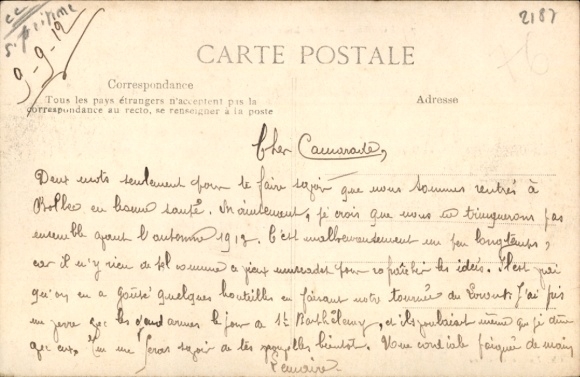 9-9-12
2187
76
CARTE POSTALE
Correspondance
Tous les pays étrangers n'acceptent pas la
correspondance au recto, se renseigner à la poste
Adresse
Cher Camarade,
Deux mots seulement pour te faire savoir que nous sommes rentrés à
Bolbec en bonne santé. Maintenant, je crois que nous ne trinquerons pas
ensemble avant l'automne 1913. C'est malheureusement un peu longtemps,
car il n'y rien de tel comme le vieux muscadet pour rafraîchir les idées. Il est vrai
qu'on en a goûté quelques bouteilles en faisant notre tournée du J'ai pris
un verre avec les gendarmes le jour de St Barthélemy, et ils voulaient même que je dîne
avec eux. Tu me feras savoir de tes nouvelles bientôt. Une cordiale poignée de main
Lemaire